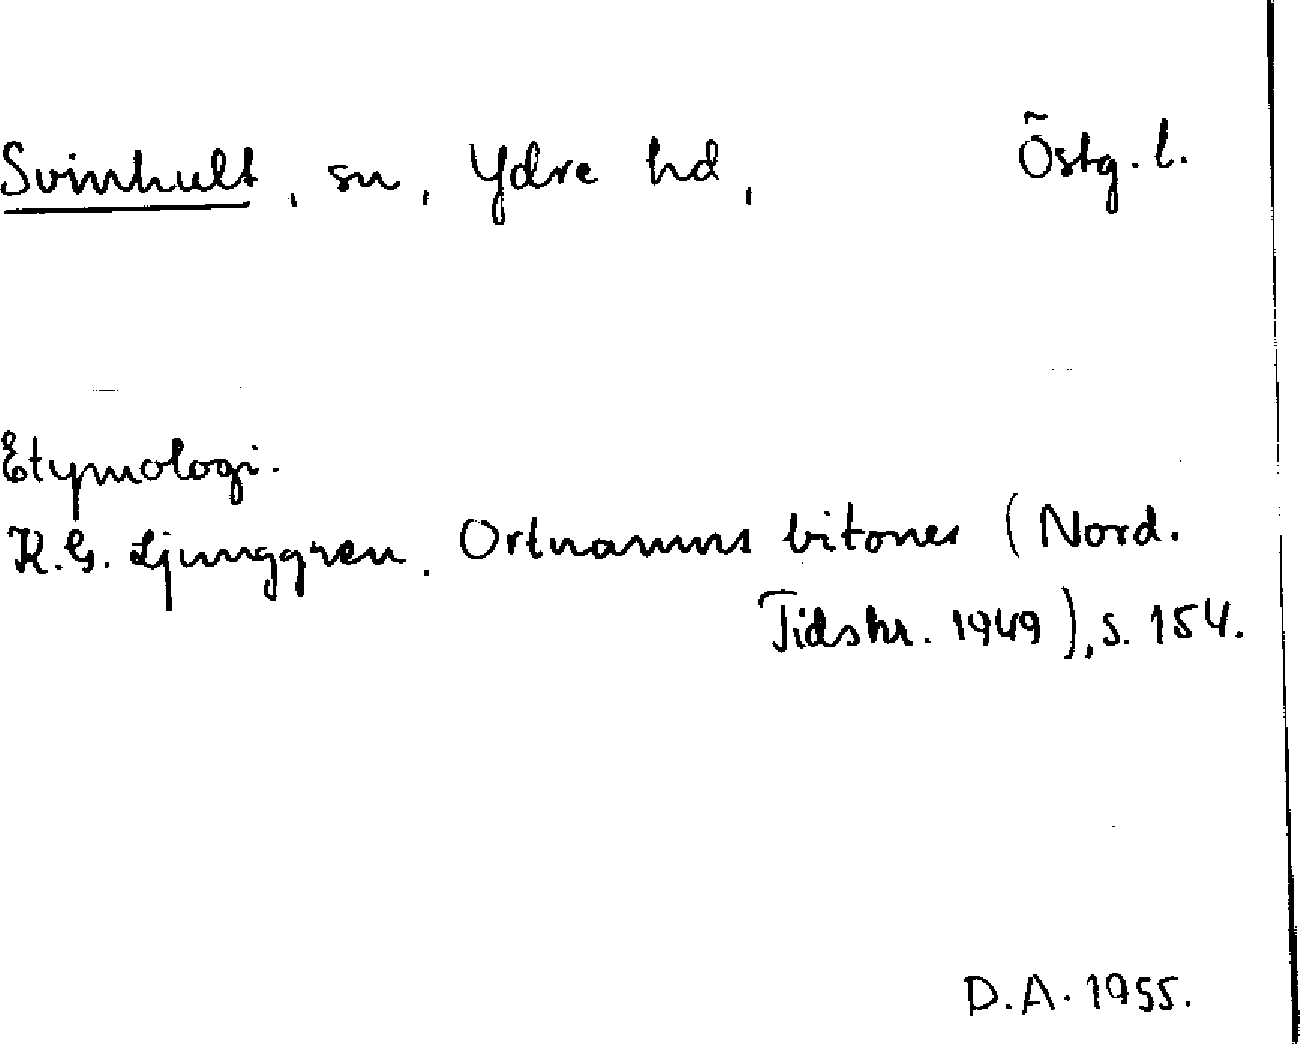 Svinhult, sn, Ydre hd, Östg. l.
Etymologi.
K.G. Ljunggren, Ortnamns bitoner (Nord.
Tidskr. 1949), s. 154.
D.A. 1955.